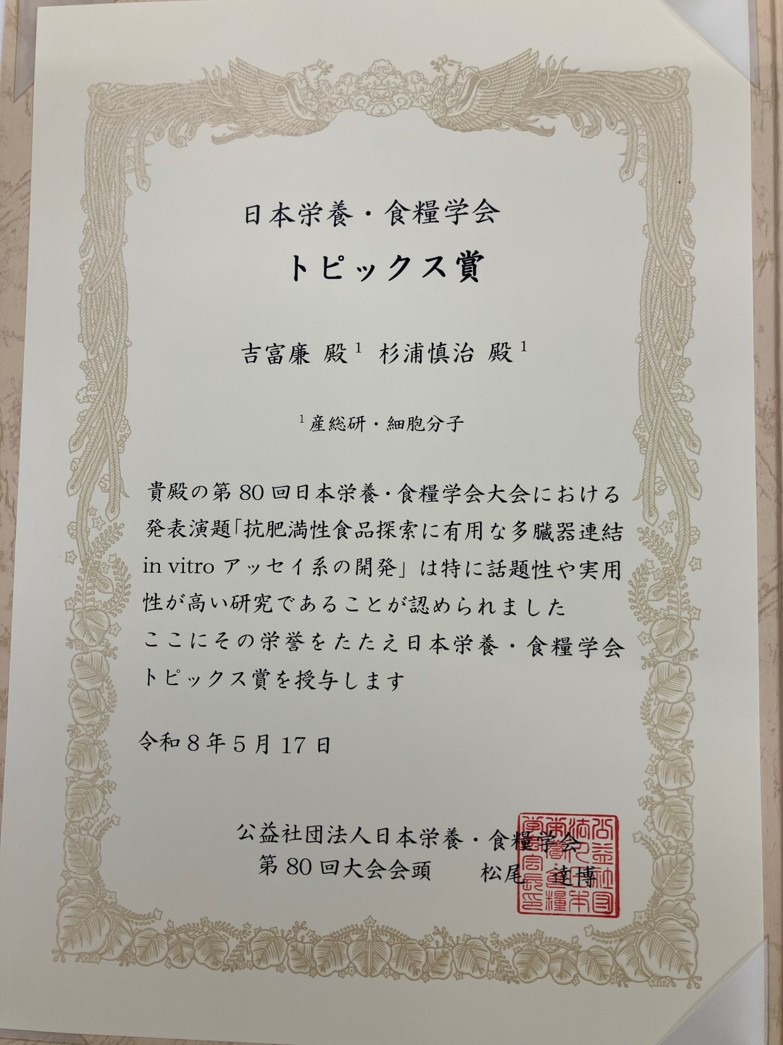 日本栄養・食糧学会
トピックス賞
吉富廉 殿1 杉浦慎治 殿1
1産総研・細胞分子
貴殿の第80回日本栄養・食糧学会大会における
発表演題「抗肥満性食品探索に有用な多臓器連結
in vitro アッセイ系の開発」は特に話題性や実用
性が高い研究であることが認められました
ここにその栄誉をたたえ日本栄養・食糧学会
トピックス賞を授与します
令和8年5月17日
公益社団法人日本栄養・食糧学会
第80回大会会頭 松尾 達博